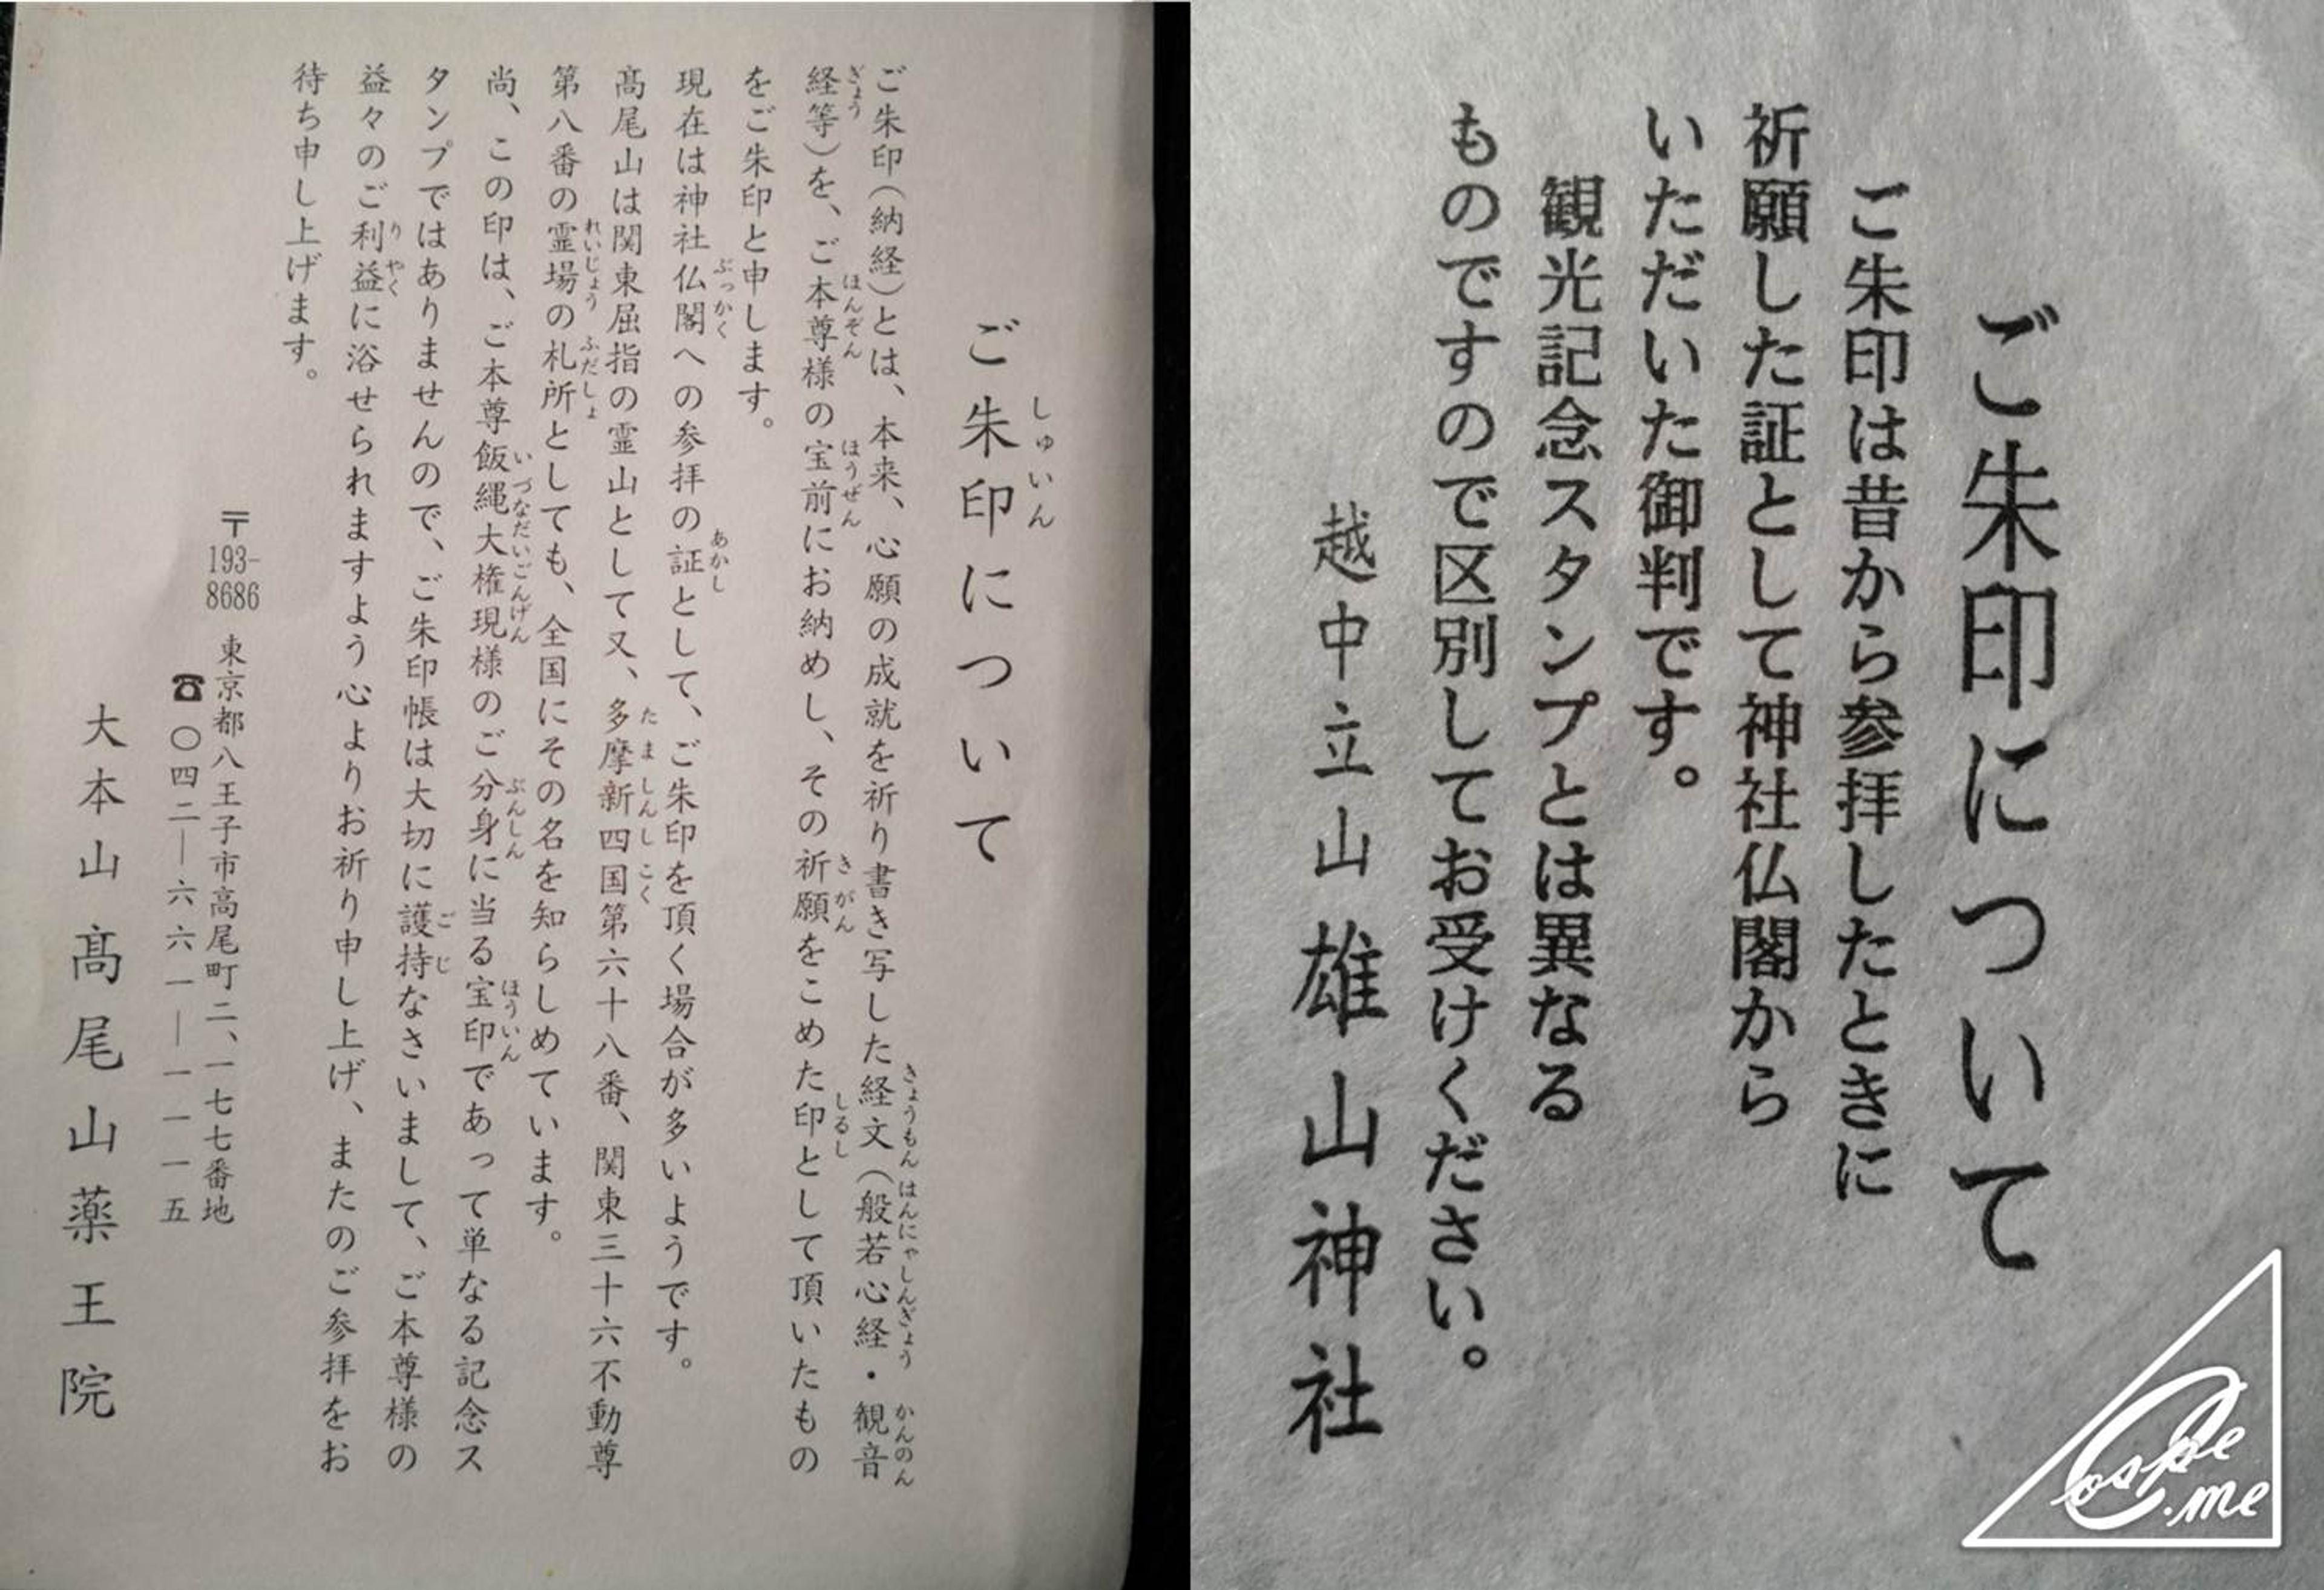 ご朱印について
しゅいん
ご朱印（納経）とは、本来、心願の成就を祈り書き写した経文（般若心経・観音
きょうもん はんにゃしんぎょう かんのん
経等）を、ご本尊様の宝前にお納めし、その祈願をこめた印として頂いたもの
ぎょう ほんぞん ほうぜん きがん しるし
をご朱印と申します。
現在は神社仏閣への参拝の証として、ご朱印を頂く場合が多いようです。
ぶっかく あかし
髙尾山は関東屈指の霊山として又、多摩新四国第六十八番、関東三十六不動尊
たましんしこく
第八番の霊場の札所としても、全国にその名を知らしめています。
れいじょう ふだしょ
尚、この印は、ご本尊飯縄大権現様のご分身に当る宝印であって単なる記念ス
いづなだいごんげん ぶんしん ほういん
タンプではありませんので、ご朱印帳は大切に護持なさいまして、ご本尊様の
ごじ
益々のご利益に浴せられますよう心よりお祈り申し上げ、またのご参拝をお
りやく
待ち申し上げます。
〒193-8686 東京都八王子市高尾町二、一七七番地
☎〇四二―六六一―一一一五
大本山髙尾山薬王院
ご朱印について
ご朱印は昔から参拝したときに
祈願した証として神社仏閣から
いただいた御判です。
観光記念スタンプとは異なる
ものですので区別してお受けください。
越中立山 雄山神社
Cospe.me